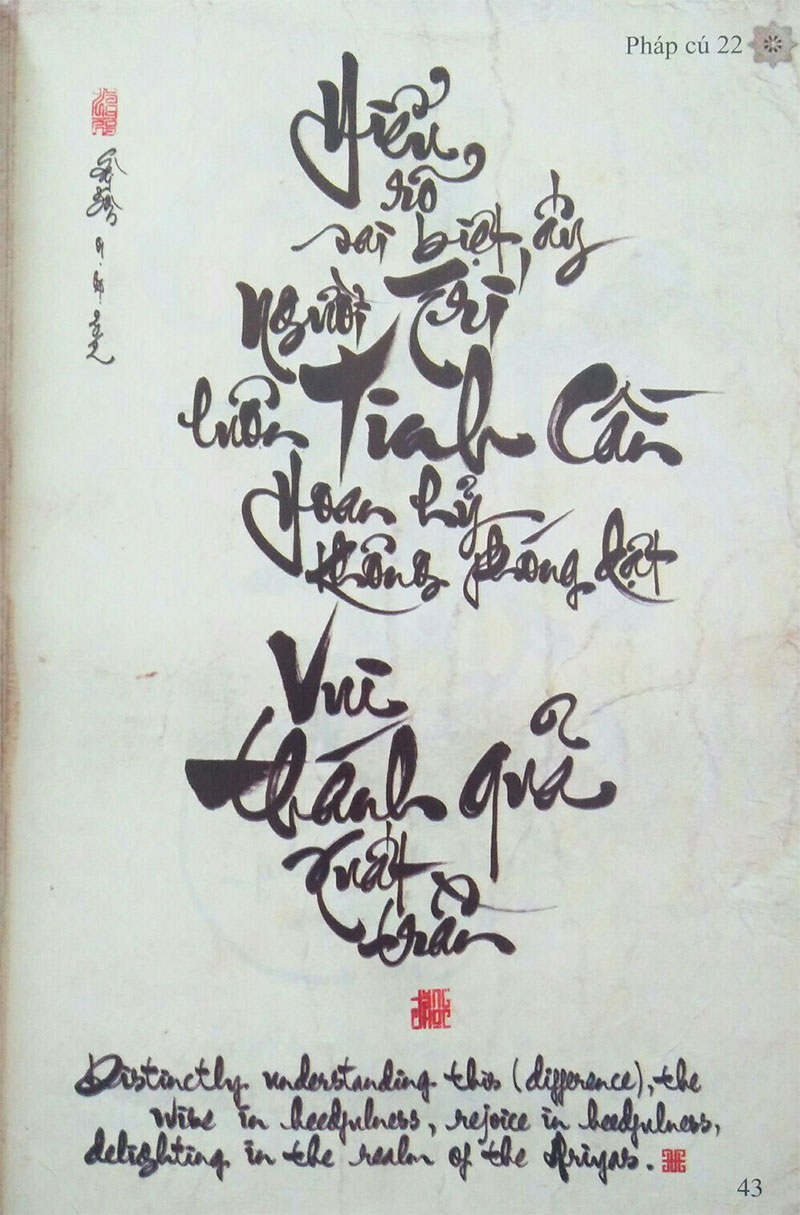 Pháp cú 22
Hiểu
rõ
sai biệt ấy
Người Trí
luôn Tinh Cần
Hoan hỷ
không phóng dật
Vui
thánh quả
xuất
trần
Distinctly understanding this (difference), the
wise in heedfulness, rejoice in heedfulness,
delighting in the realm of the Ariyas.
43